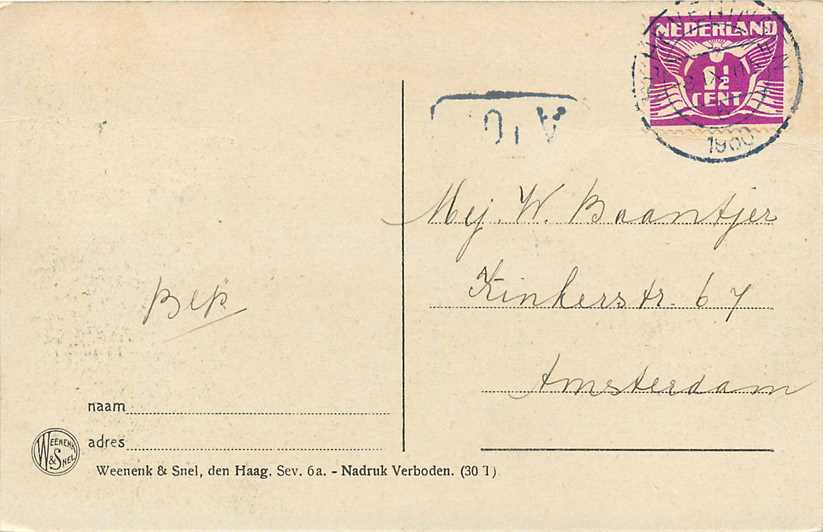 NEDERLAND
1½
CENT
1960
Mej. W. Baantjer
Kinkerstr. 67
Amsterdam
Bep
naam
adres
WEENENK
& SNEL
Weenenk & Snel, den Haag. Sev. 6a. - Nadruk Verboden. (30 T)